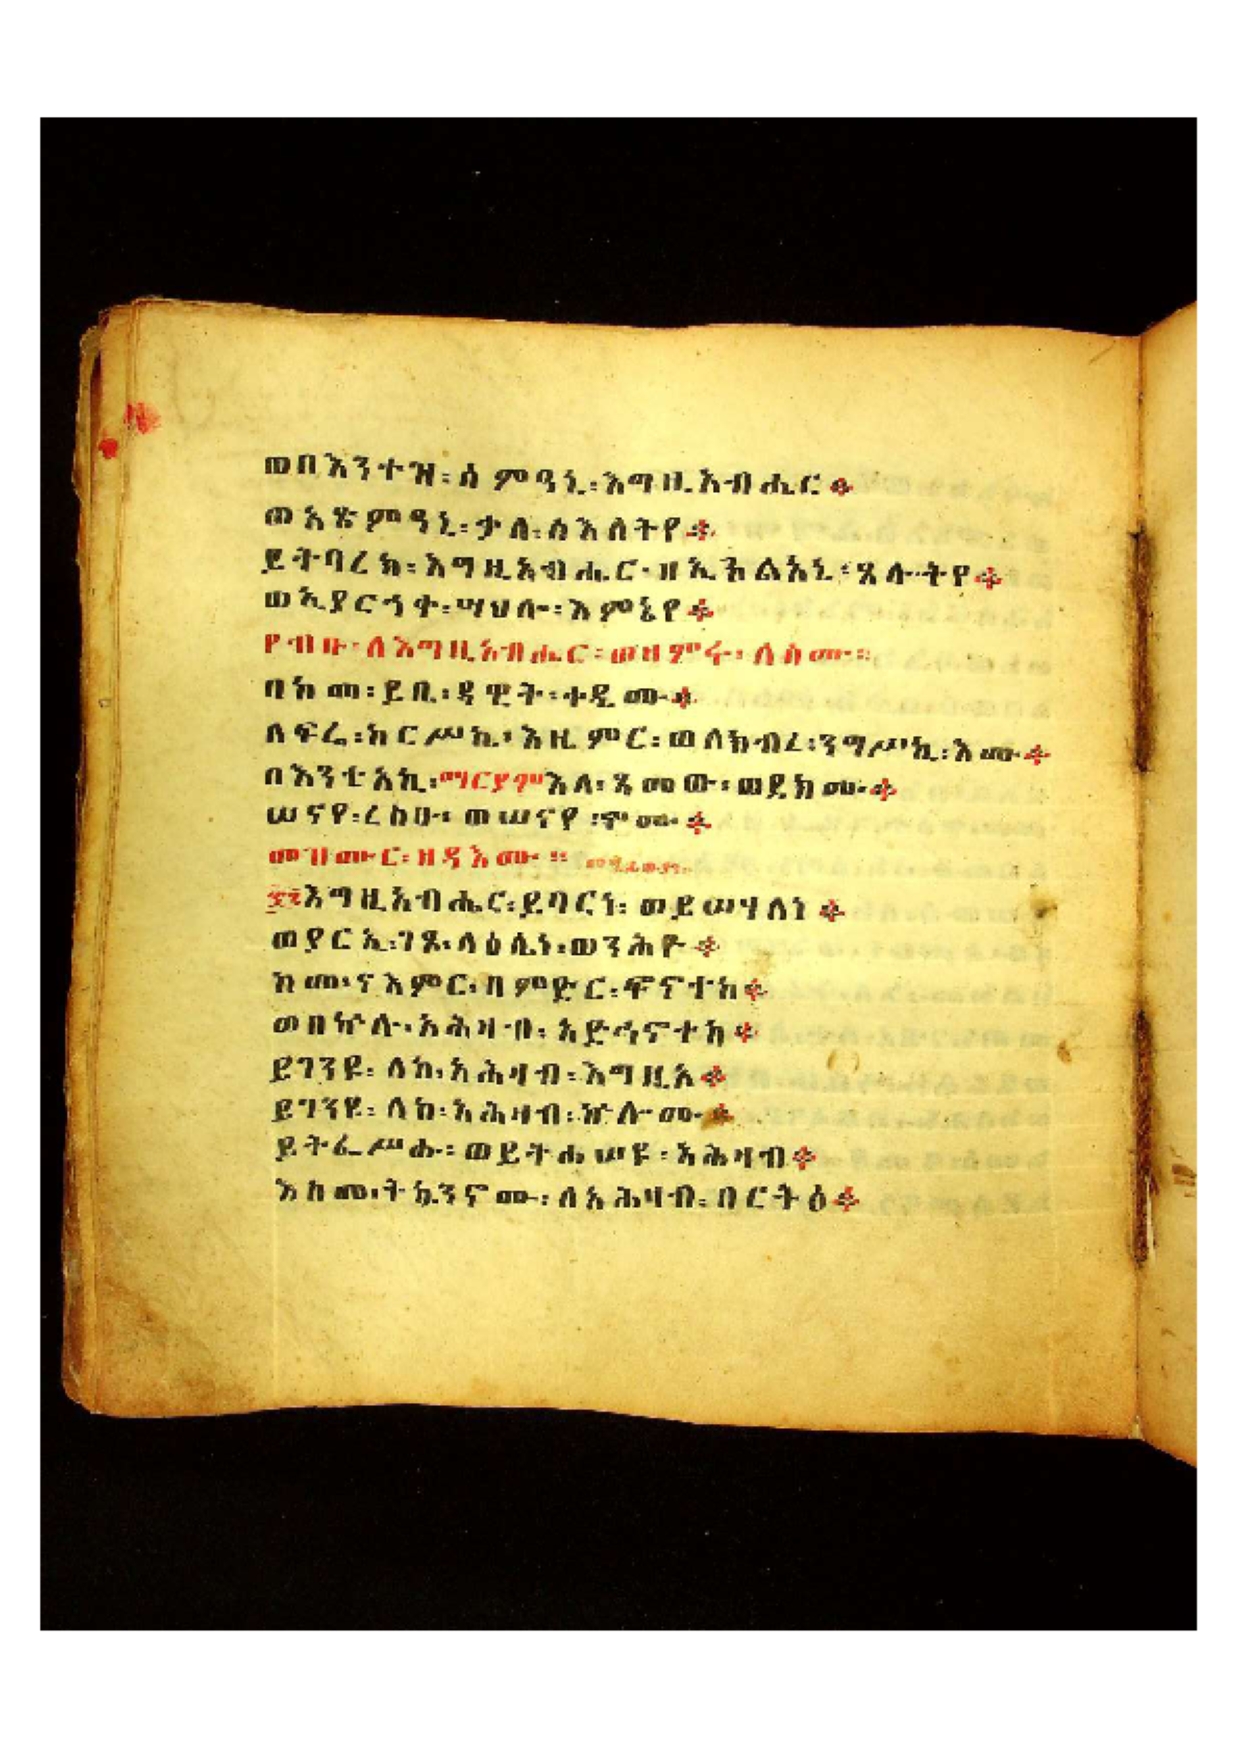 ወበእንተዝ፡ሰምዓኒ፡እግዚአብሔር።
ወአጽምዓኒ፡ቃለ፡ስእለትየ።
ይትባረክ፡እግዚአብሔር፡ዘኢከልአኒ፡ጸሎትየ።
ወኢያርኀቀ፡ሣህሎ፡እምኔየ።
የብቡ፡ለእግዚአብሔር፡ወዘምሩ፡ለስሙ።
በከመ፡ይቢ፡ዳዊት፡ቀዲሙ።
ለፍሬ፡ከርሥኪ፡እዜምር፡ወለክብረ፡ንግሥኪ፡እሙ።
በእንቲአኪ፡ማርያምእለ፡ጻመው፡ወደክሙ።
ሠናየ፡ረከቡ፡ወሠናየ፡ኖሙ።
መዝሙር፡ዘዳእሙ።
፷፮እግዚአብሔር፡ይባርነ፡ወይሠሃለነ።
ወያርኢ፡ገጾ፡ላዕሌነ፡ወንሕዮ።
ከመ፡ናእምር፡በምድር፡ፍኖተከ።
ወበኵሉ፡አሕዛብ፡አድኅኖተከ።
ይገንዩ፡ለከ፡አሕዛብ፡እግዚአ።
ይገንዩ፡ለከ፡አሕዛብ፡ኵሎሙ።
ይትፌሥሑ፡ወይትሐሠዩ፡አሕዛብ።
እስመ፡ትኴንኖሙ፡ለአሕዛብ፡በርትዕ።